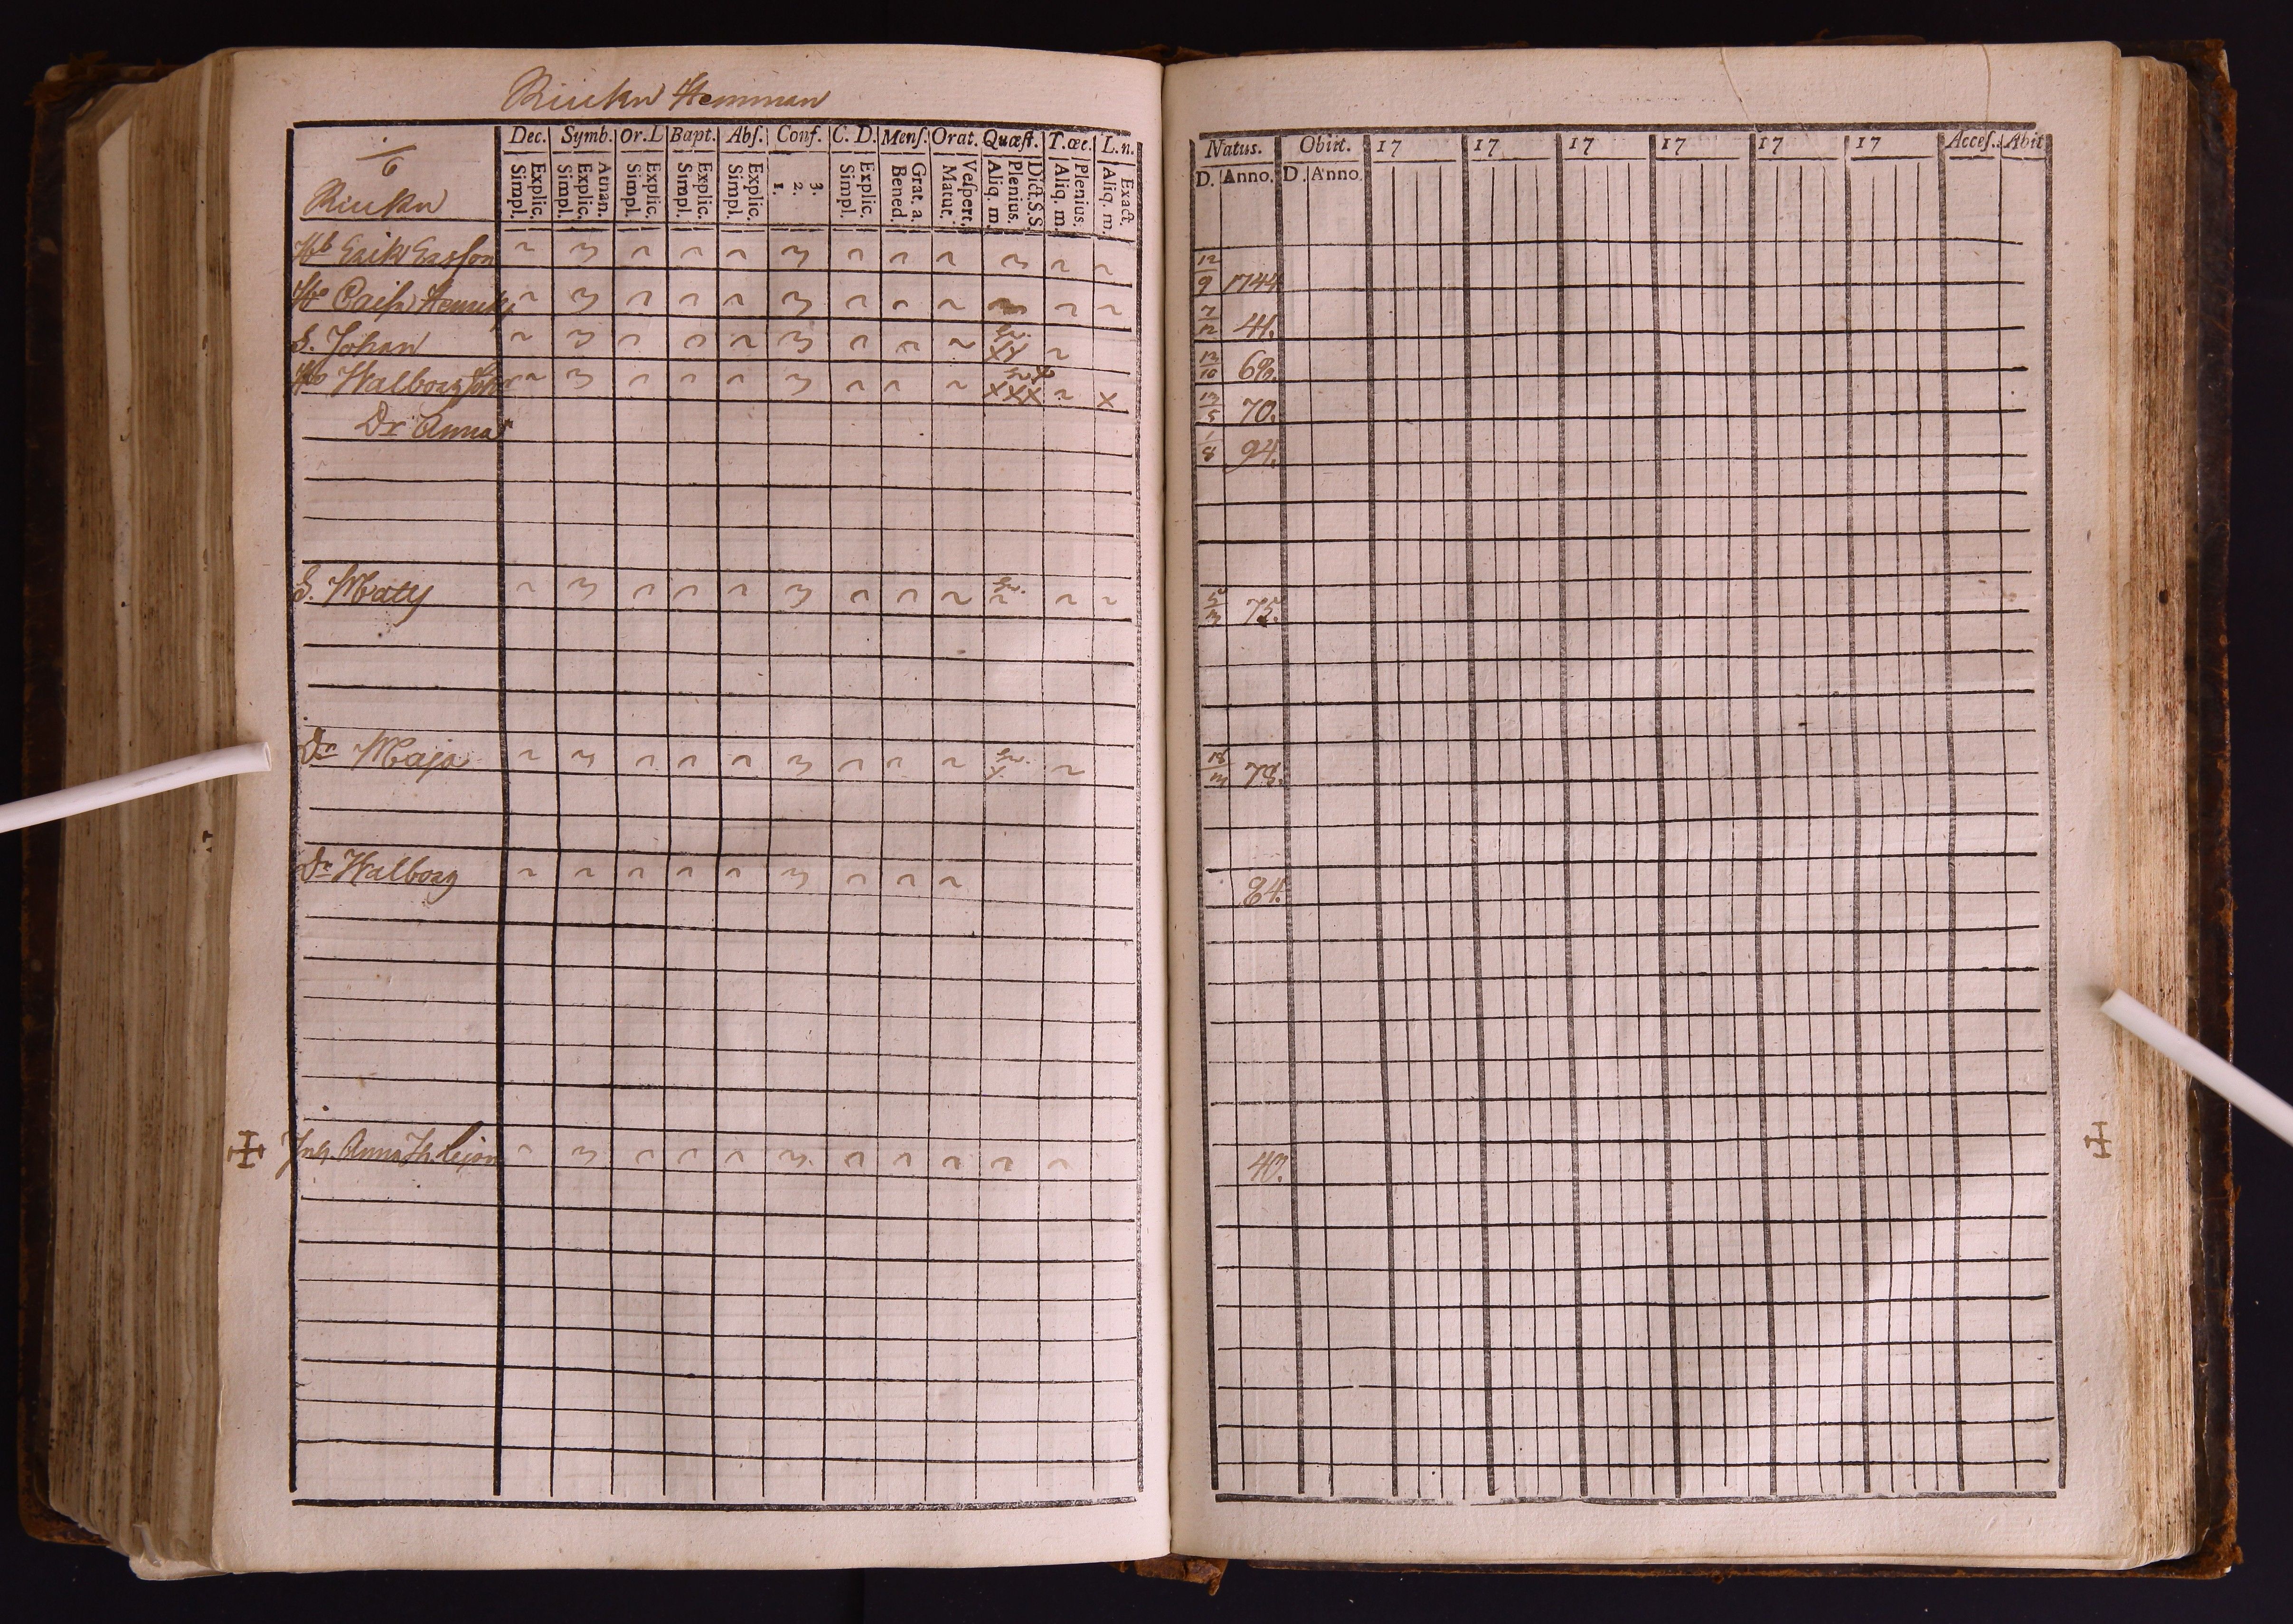 Riuku Hemman
Dec. Symb. Or. L Bapt. Abſ. Conf. C. D. Menſ. Orat. Quæſt. T. œc. L. n.
Explic. Simpl. Athan. Explic. Simpl. Explic. Simpl. Explic. Simpl. Explic. Simpl. 3. 2. 1. Explic. Simpl. Grat. a. Bened. Veſpert. Matut. Dict. S. S. Plenius. Aliq. m. Plenius. Aliq. m. Exact. Aliq. m.
6
Riuku
Hb Erik Ersson
Hu Caisa Henriks
S. Johan
Hu Walborg Joh
Dr Anna
S. Matts
Dr Maja
Dr Walborg
Inh Anna
Natus. Obiit. 17 17 17 17 17 17 Acceſ. Abit
D. Anno. D. Anno.
12/9 1744
7/12 41.
13/10 68.
13/5 70.
1/8 94.
5/3 75.
18/3 78.
84.
43.